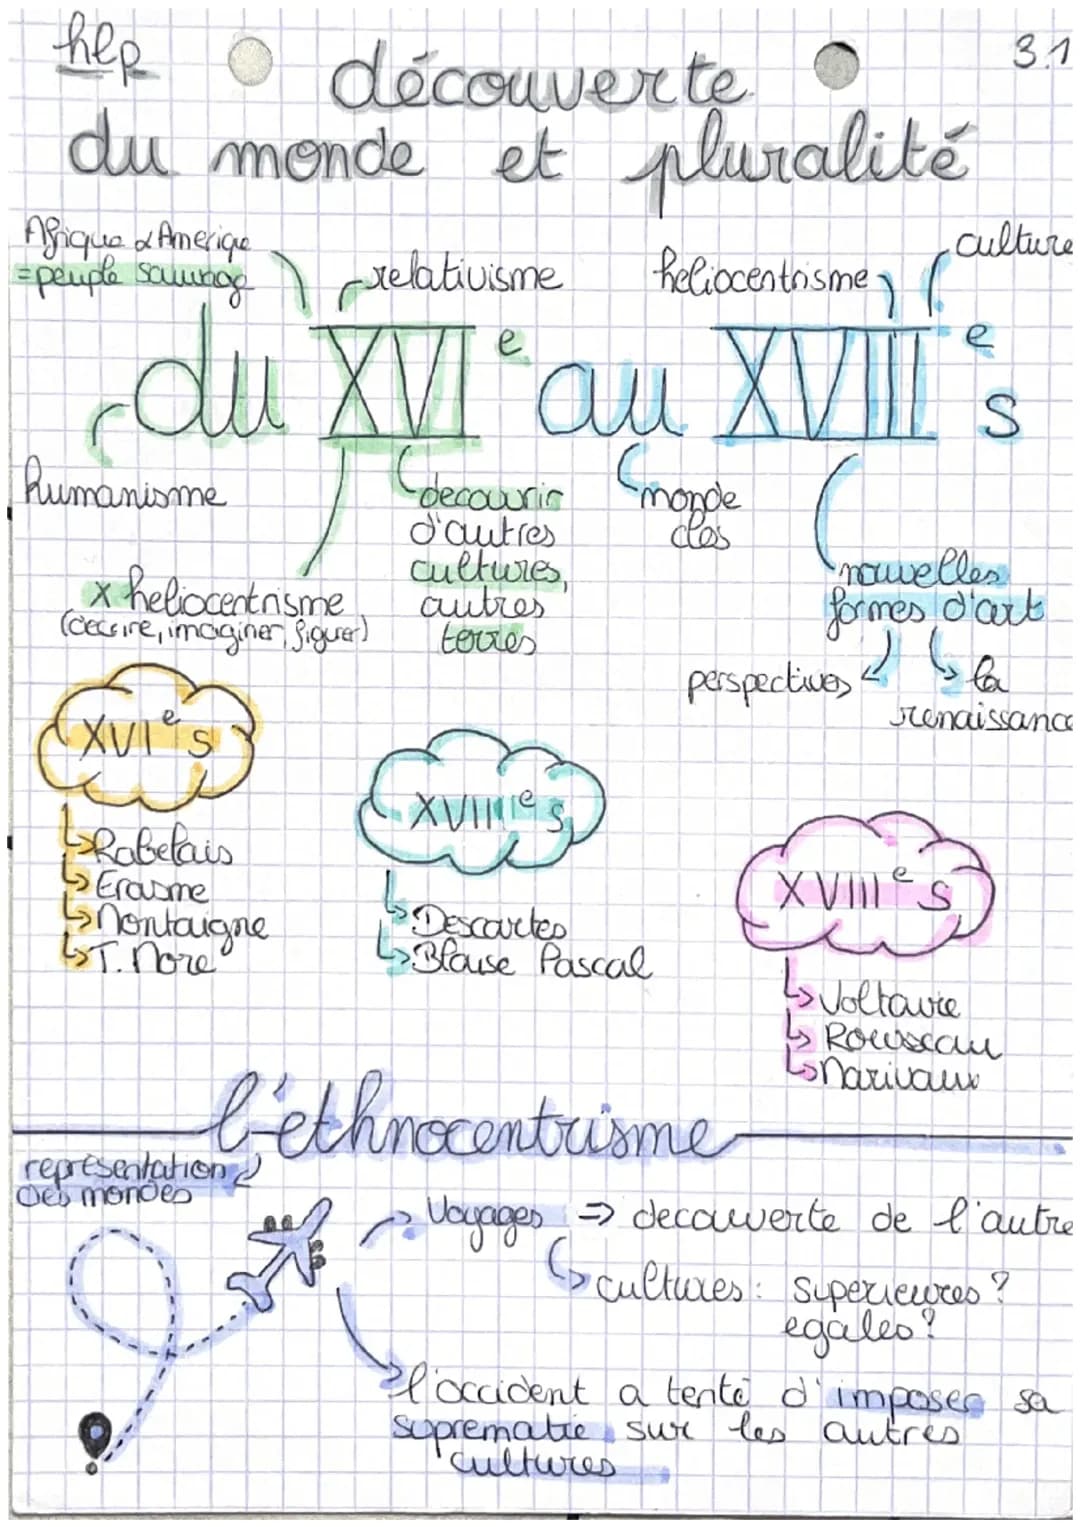 hlp
3.1
découverte
du monde et pluralité
Afrique & Amerique
=peuple sauvage
relativisme
heliocentrisme
culture
du XVIe au XVIIIe s
humanisme
decouvrir
d'autres
cultures,
autres
terres
monde
clos
x heliocentrisme
(decrire, imaginer, figurer)
nouvelles
formes d'art
perspectives
la
renaissance
XVIe s
Rabelais
Erasme
Montaigne
T. More
XVIIe s
Descartes
Blaise Pascal
XVIIIe s
Voltaire
Rousseau
Marivaux
l'ethnocentrisme
représentation
des mondes
Voyages => decouverte de l'autre
cultures : superieures?
egales?
l'occident a tenté d'imposer sa
suprematie sur les autres
cultures